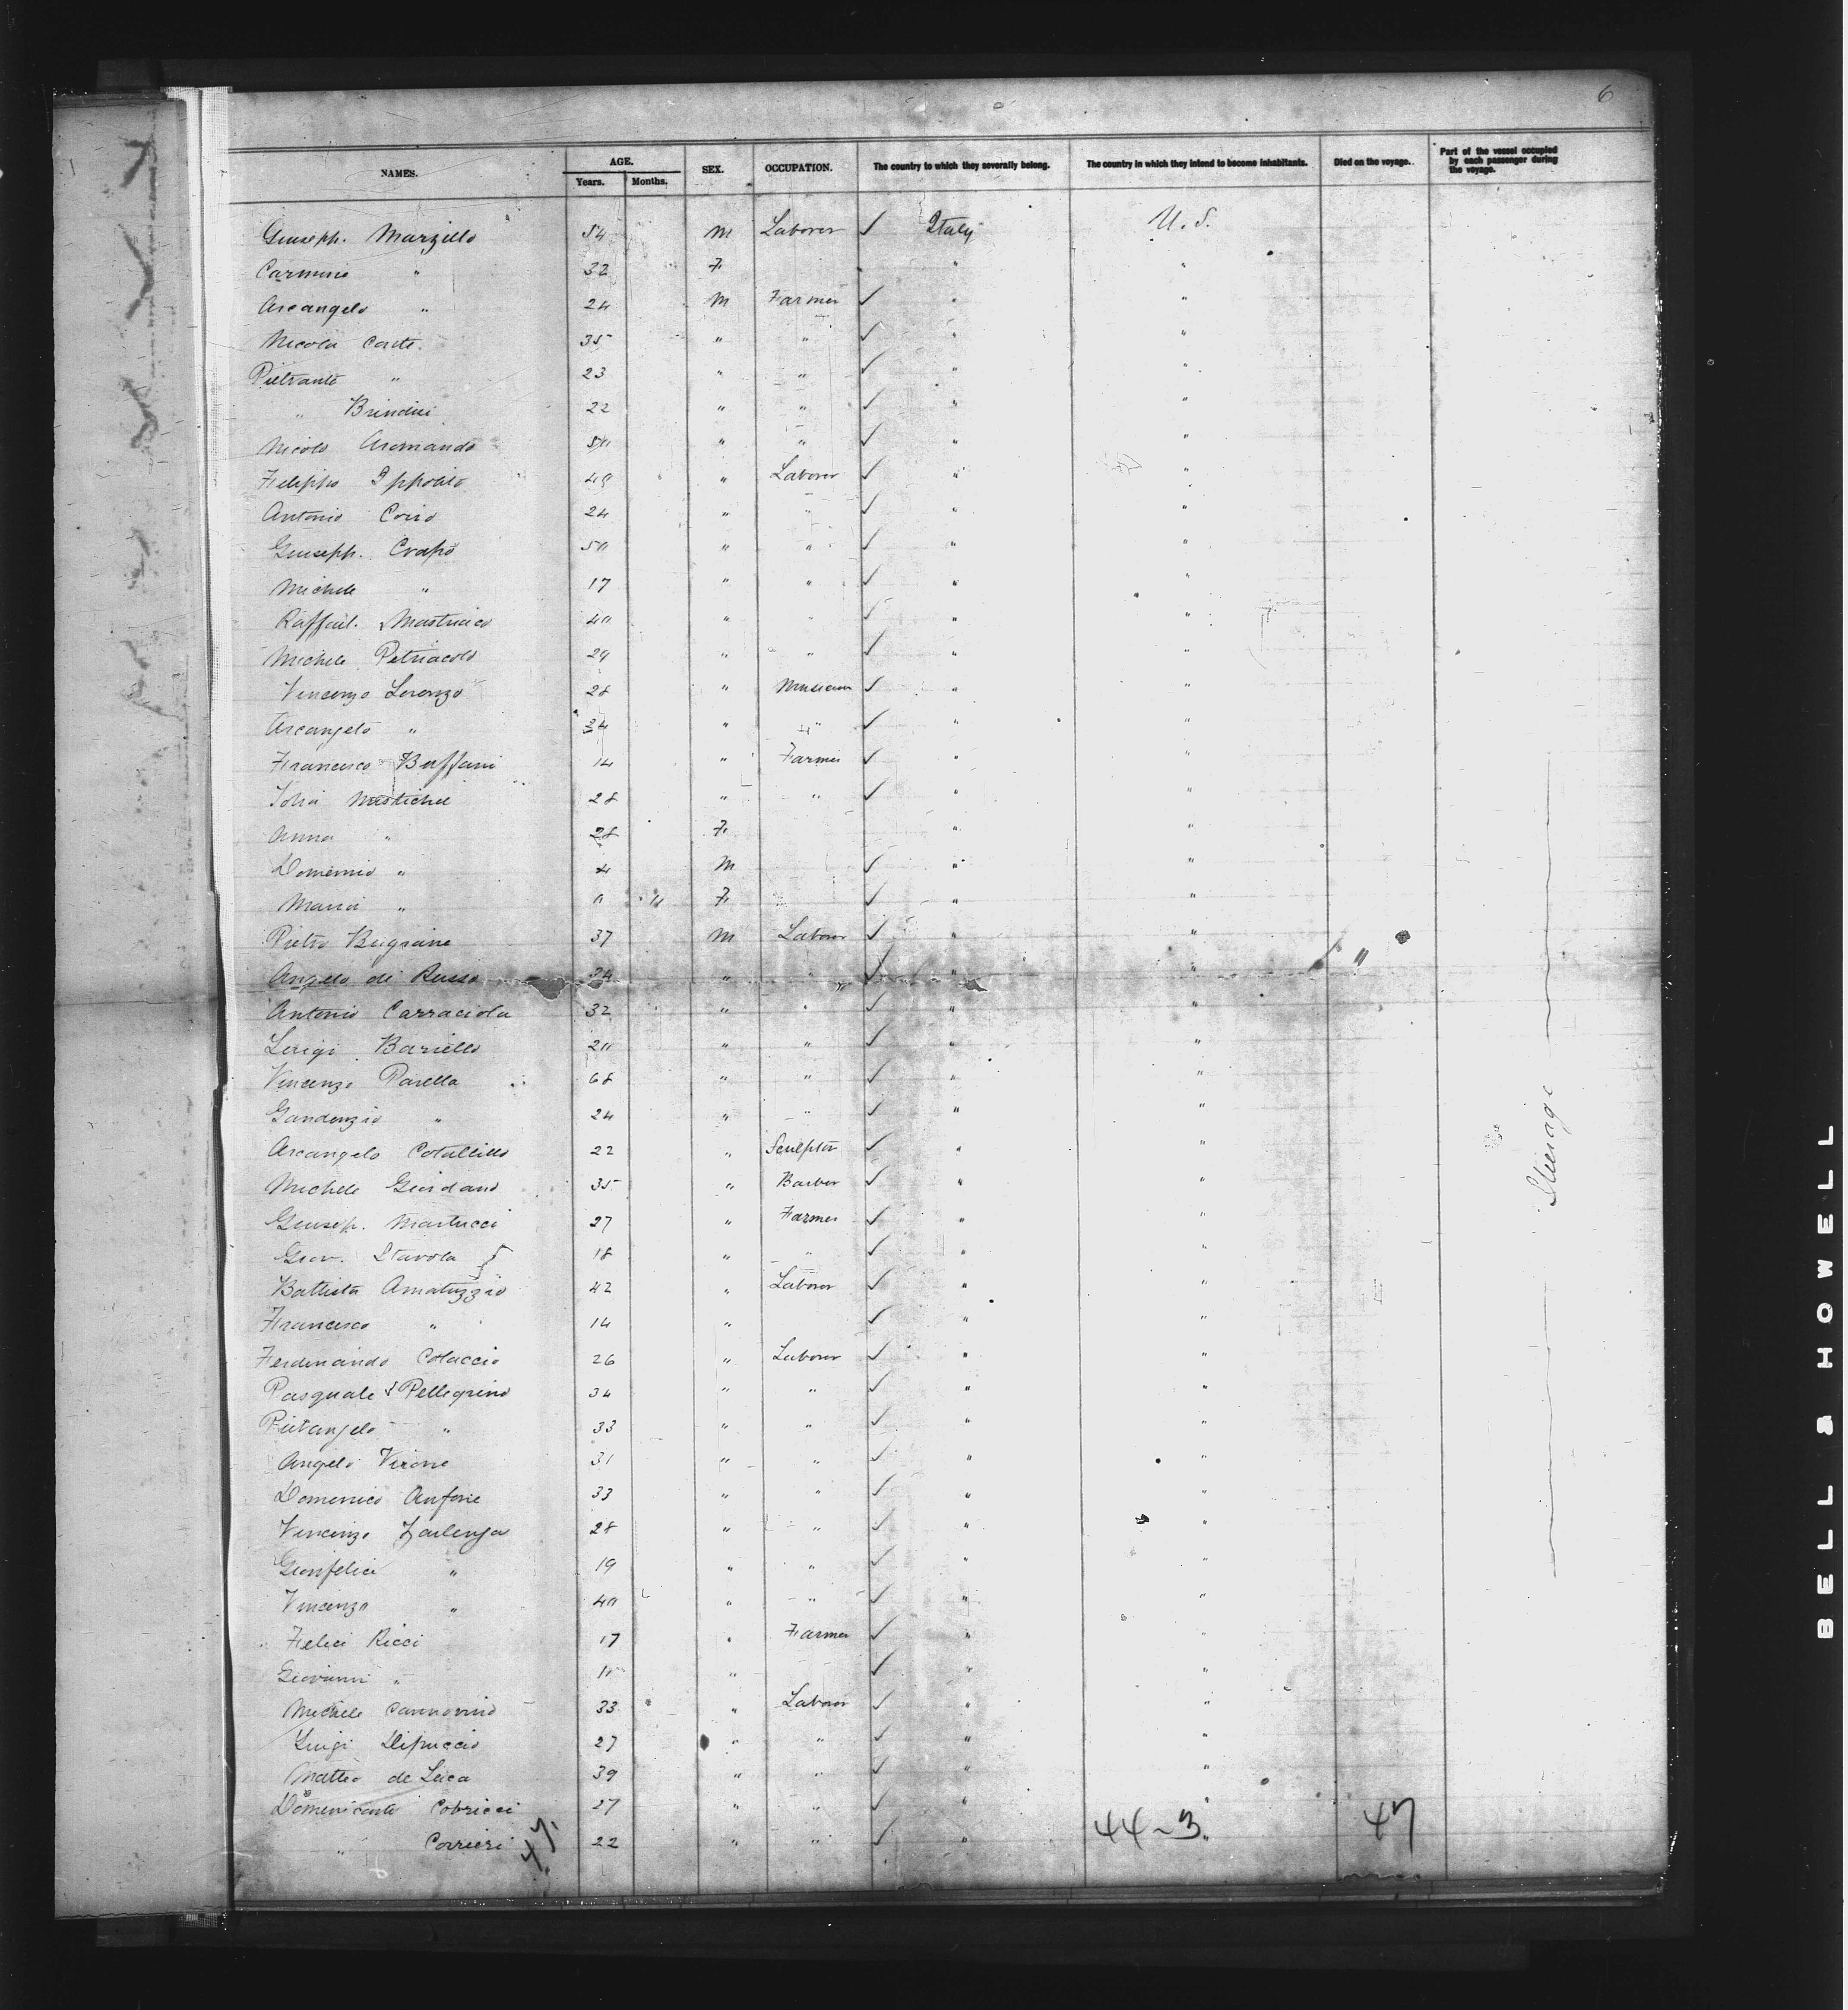 6
NAMES. AGE. Years. Months. SEX. OCCUPATION. The country to which they severally belong. The country in which they intend to become inhabitants. Died on the voyage. Part of the vessel occupied by each passenger during the voyage.
Giuseph. Marzillo 54 M Laborer ✓ Italy U.S.
Carmine " 32 F " "
Arcangelo " 24 M Farmer ✓ " "
Nicola Conte 35 " " ✓ " "
Pietrant " 23 " " ✓ " "
" Brindisi 22 " " ✓ " "
Nicola " " ✓ " "
Filippo Ippolito Laborer ✓ " "
Antonio Coiro 24 " " ✓ " "
Giuseph. Crapo 50 " " ✓ " "
Michele " 17 " " ✓ " "
Raffael. 40 " " ✓ " "
Michele 29 " " ✓ " "
Vincenzo Lorenzo 28 " Musician ✓ " "
Arcangelo " 34 " " ✓ " "
Francesco Buffani 14 " Farmer ✓ " "
28 " " ✓ " "
Anna " 28 F " "
Domenico " 4 M ✓ " "
Maria " 0 11 F ✓ " "
Pietro 37 M Laborer ✓ " "
Angelo di Russo 24 " " ✓ " " "
Antonio Carraciola 32 " " ✓ " "
Luigi Bariello 20 " " ✓ " "
Vincenzo Parella 68 " " ✓ " "
Gaudenzio " 24 " " ✓ " "
Arcangelo Cotallillo 22 " Sculptor ✓ " "
Michele Giordano 35 " Barber ✓ " "
Giusep. Martucci 27 " Farmer ✓ " "
Giov. Stavola 18 " " ✓ " "
Battista Amatuzzio 42 " Laborer ✓ " "
Francesco " 14 " ✓ " "
Ferdinando Colaccio 26 " Laborer ✓ " "
Pasquale Pellegrino 34 " " ✓ " "
Pietangelo " 33 " " ✓ " "
Angelo Virone 31 " " ✓ " "
Domenico Anfone 33 " " ✓ " "
Vincenzo Zarlenga 28 " " ✓ " "
Gionfelice " 19 " " ✓ " "
Vincenzo " 40 " " ✓ " "
Felice Ricci 17 " Farmer ✓ " "
Giovanni " " ✓ " "
Michele Cannovino 33 " Laborer ✓ " "
Luigi Dipuccio 27 " " ✓ " "
Matteo de Luca 39 " " ✓ " "
Domenicant. Cobricci 27 " " ✓ " "
" Corrieri 22 " " ✓ " "
47
44-3
47
Steerage
BELL & HOWELL